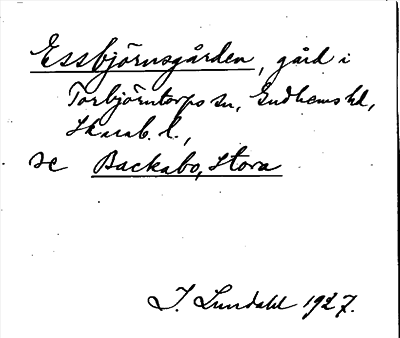 Essbjörnsgården, gård i
Torbjörntorps sn, Gudhems hd,
Skarab. l.,
se Backabo, Stora
I. Lundahl 1927.